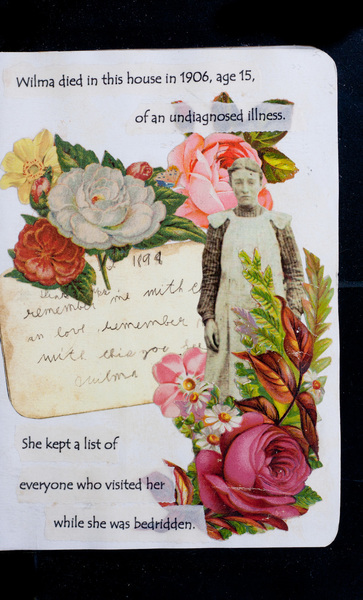 Wilma died in this house in 1906, age 15,
of an undiagnosed illness.
1894
remember me with
in love, remember
with this you
Wilma
She kept a list of
everyone who visited her
while she was bedridden.